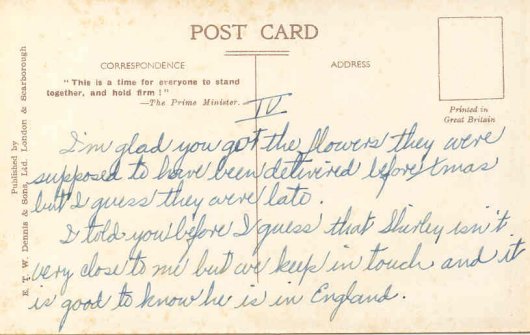 POST CARD
CORRESPONDENCE
ADDRESS
"This is a time for everyone to stand
together, and hold firm!"
—The Prime Minister.
Printed in
Great Britain
Published by
E. T. W. Dennis & Sons, Ltd. London & Scarborough
IV
I'm glad you got the flowers they were
supposed to have been delivired before Xmas
but I guess they were late.
I told you before I guess that Shirley isn't
very close to me but we keep in touch and it
is good to know he is in England.